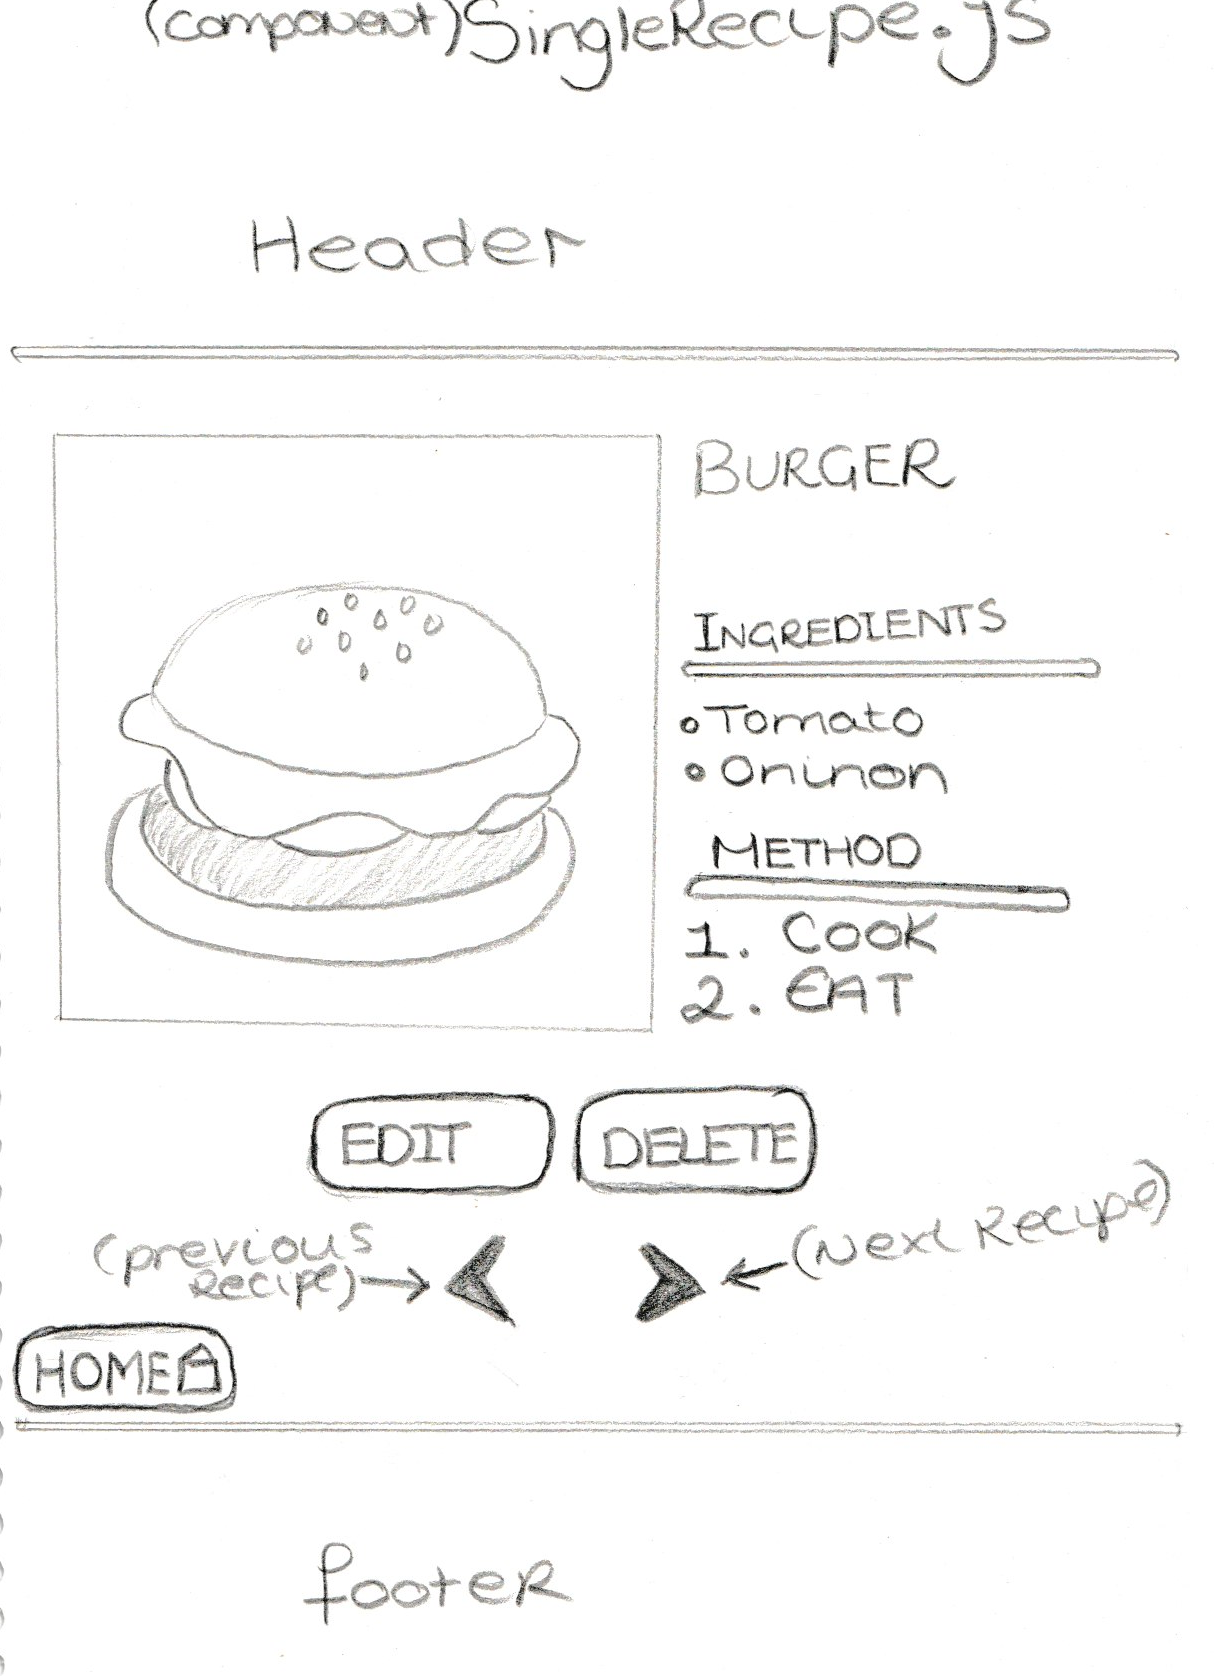 (component) SingleRecipe.js
Header
BURGER
INGREDIENTS
Tomato
Oninon
METHOD
1. COOK
2. EAT
EDIT
DELETE
(previous
Recipe)
(Next Recipe)
HOME
footer